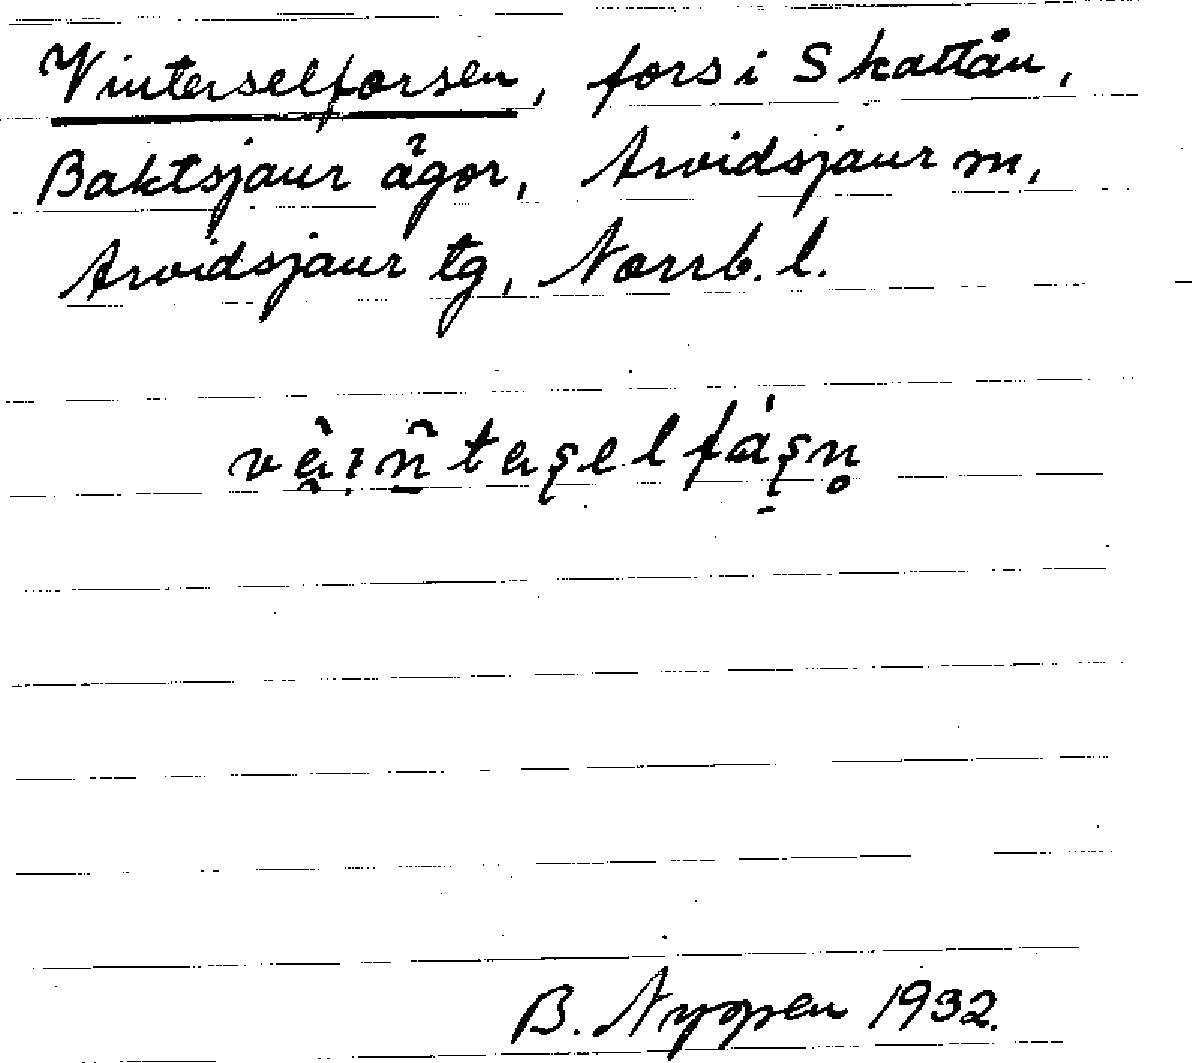 Vinterselforsen, fors i Skattån,
Baktsjaur ägor, Arvidsjaur m,
Arvidsjaur tg, Norrb. l.
B. Nyman 1932.